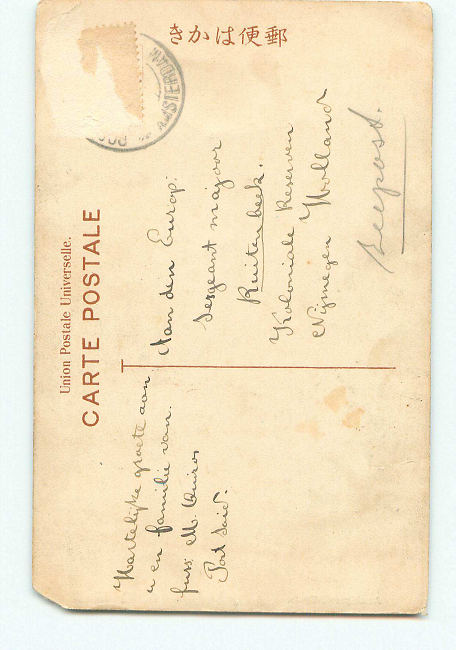 きかは便郵
Union Postale Universelle.
CARTE POSTALE
Aan den Europ:
Sergeant majoor
Ruitenbeek.
Koloniale Reserven
Nijmegen Holland
Zeepost.
Hartelijke groete aan
u en familie van.
M.
Port Said.